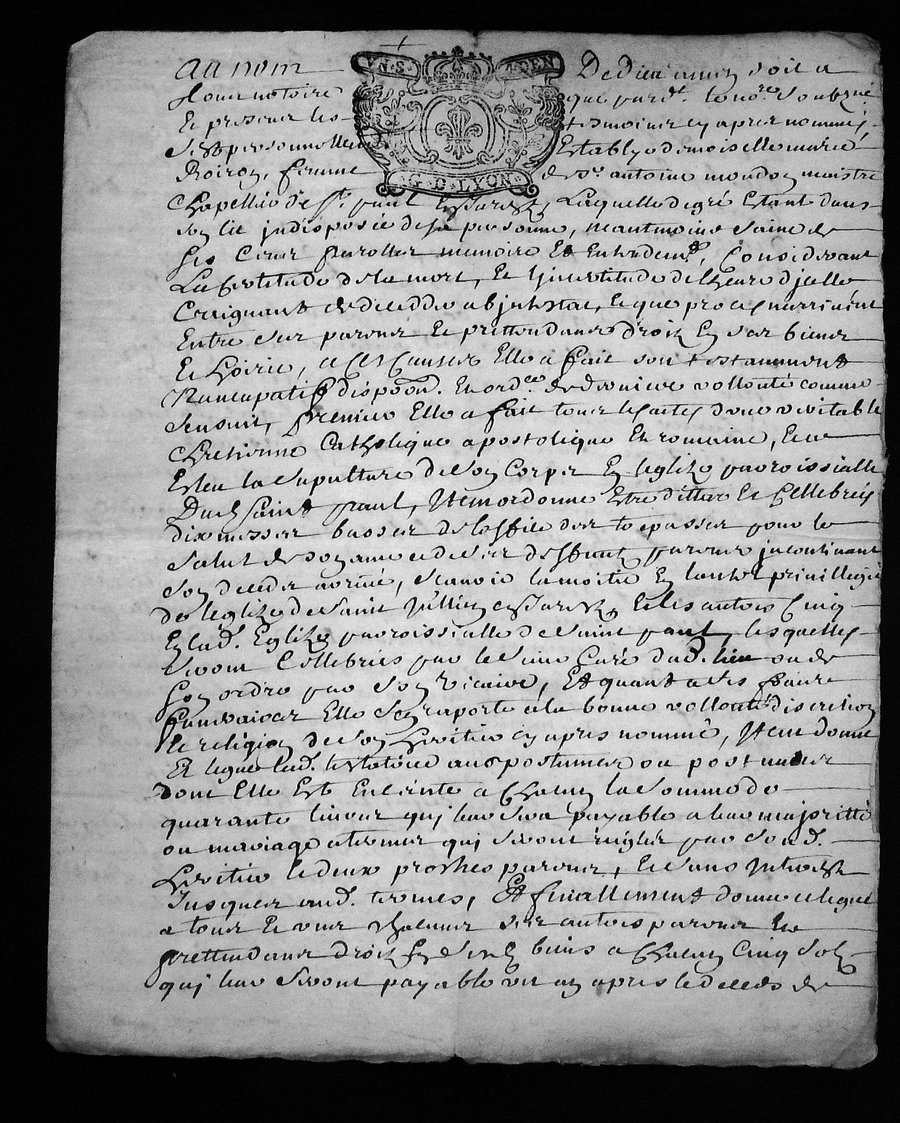 Au nom De Dieu amen Soit a
Tous notoire que pard.t le no.re Soubzné
Et presence les tesmoings cy apres nommes
Sest personnellem.t Establye demoiselle marie
Boiron, femme de s.r antoine mondon maistre
Chapellie de s.t paul En Jarestz, Laquelle de gré Estant dans
son lit jndisposée de sa personne, neantmoins saine de
ses Cens parolles memoire Et Entendem.t, Considerant
La Certitude de la mort, Et lincertitude de lheure dicelle
Creignant de decedder ab jntestat, Et que proces narrivent
Entre ses parens Et prettendans droit En ses biens
Et hoirie, a Ces Causes Elle a fait son testamment
Nuncupatif dispoon. En ord.ce de derniere vollonté comme
sensuit, premier Elle a fait tous les actes dune veritable
Chretienne Catholique apostolique Et romaine, Et a
Esleu la sepulture de son Corps En leglize parroissialle
Dud. Saint paul, Item ordonne Estre dittes Et Cellebrées
dix messes basses de loffice des trepasses pour le
salut de son ame et de ses deffunts parens jncontinant
son deceds arrivé, scavoir la moitié En lautel privillegié
de leglize de saint Jullien en Jarestz, Et les autres Cinq
En lad. Eglize parroissialle de saint paul, lesquelles
seront Cellebrées par le sieur Curé dud. lieu ou de
son ordre par son vicaire, Et quant a ses fraix
funeraires Elle sen raporte a la bonne vollonté discretion
Et religion de son heritier cy apres nommé, Item donne
Et legue lad. testatrice aus postumes ou postumes
dont Elle Est Enceinte a Chacun la somme de
quarante livres qui leur sera payable a leur majoritté
ou mariage a termes qui seront reglés par sond.
heritier Et deux proches parens, Et sans Jnterestz
Jusques aud. termes, Et finallement donne et legue
a tous Et uns Chacuns ses autres parens Et
prettendans droit En sesd. biens a Chacun Cinq solz
qui leur seront payable un an apres le deceds de
UN S. 4 DEN
G. D. LYON